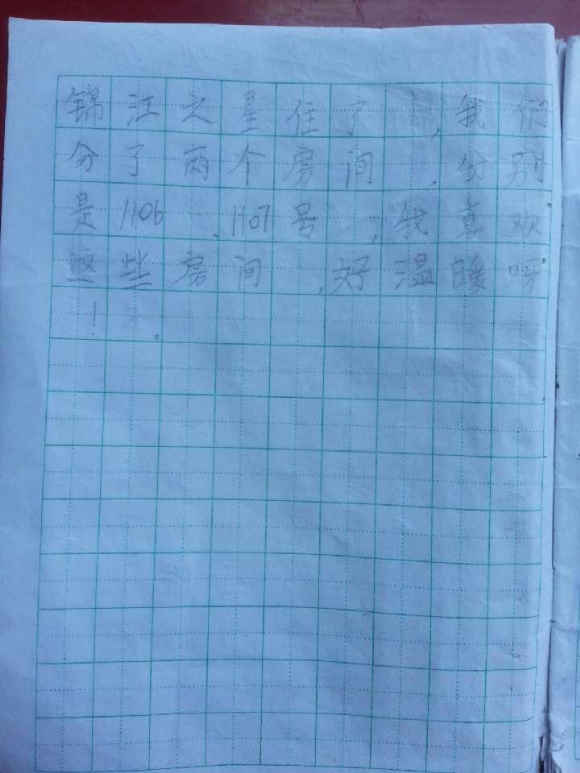 锦江之星住了,我们
分了两个房间,分别
是1106、1107号,我喜欢
这些房间,好温暖呀
!